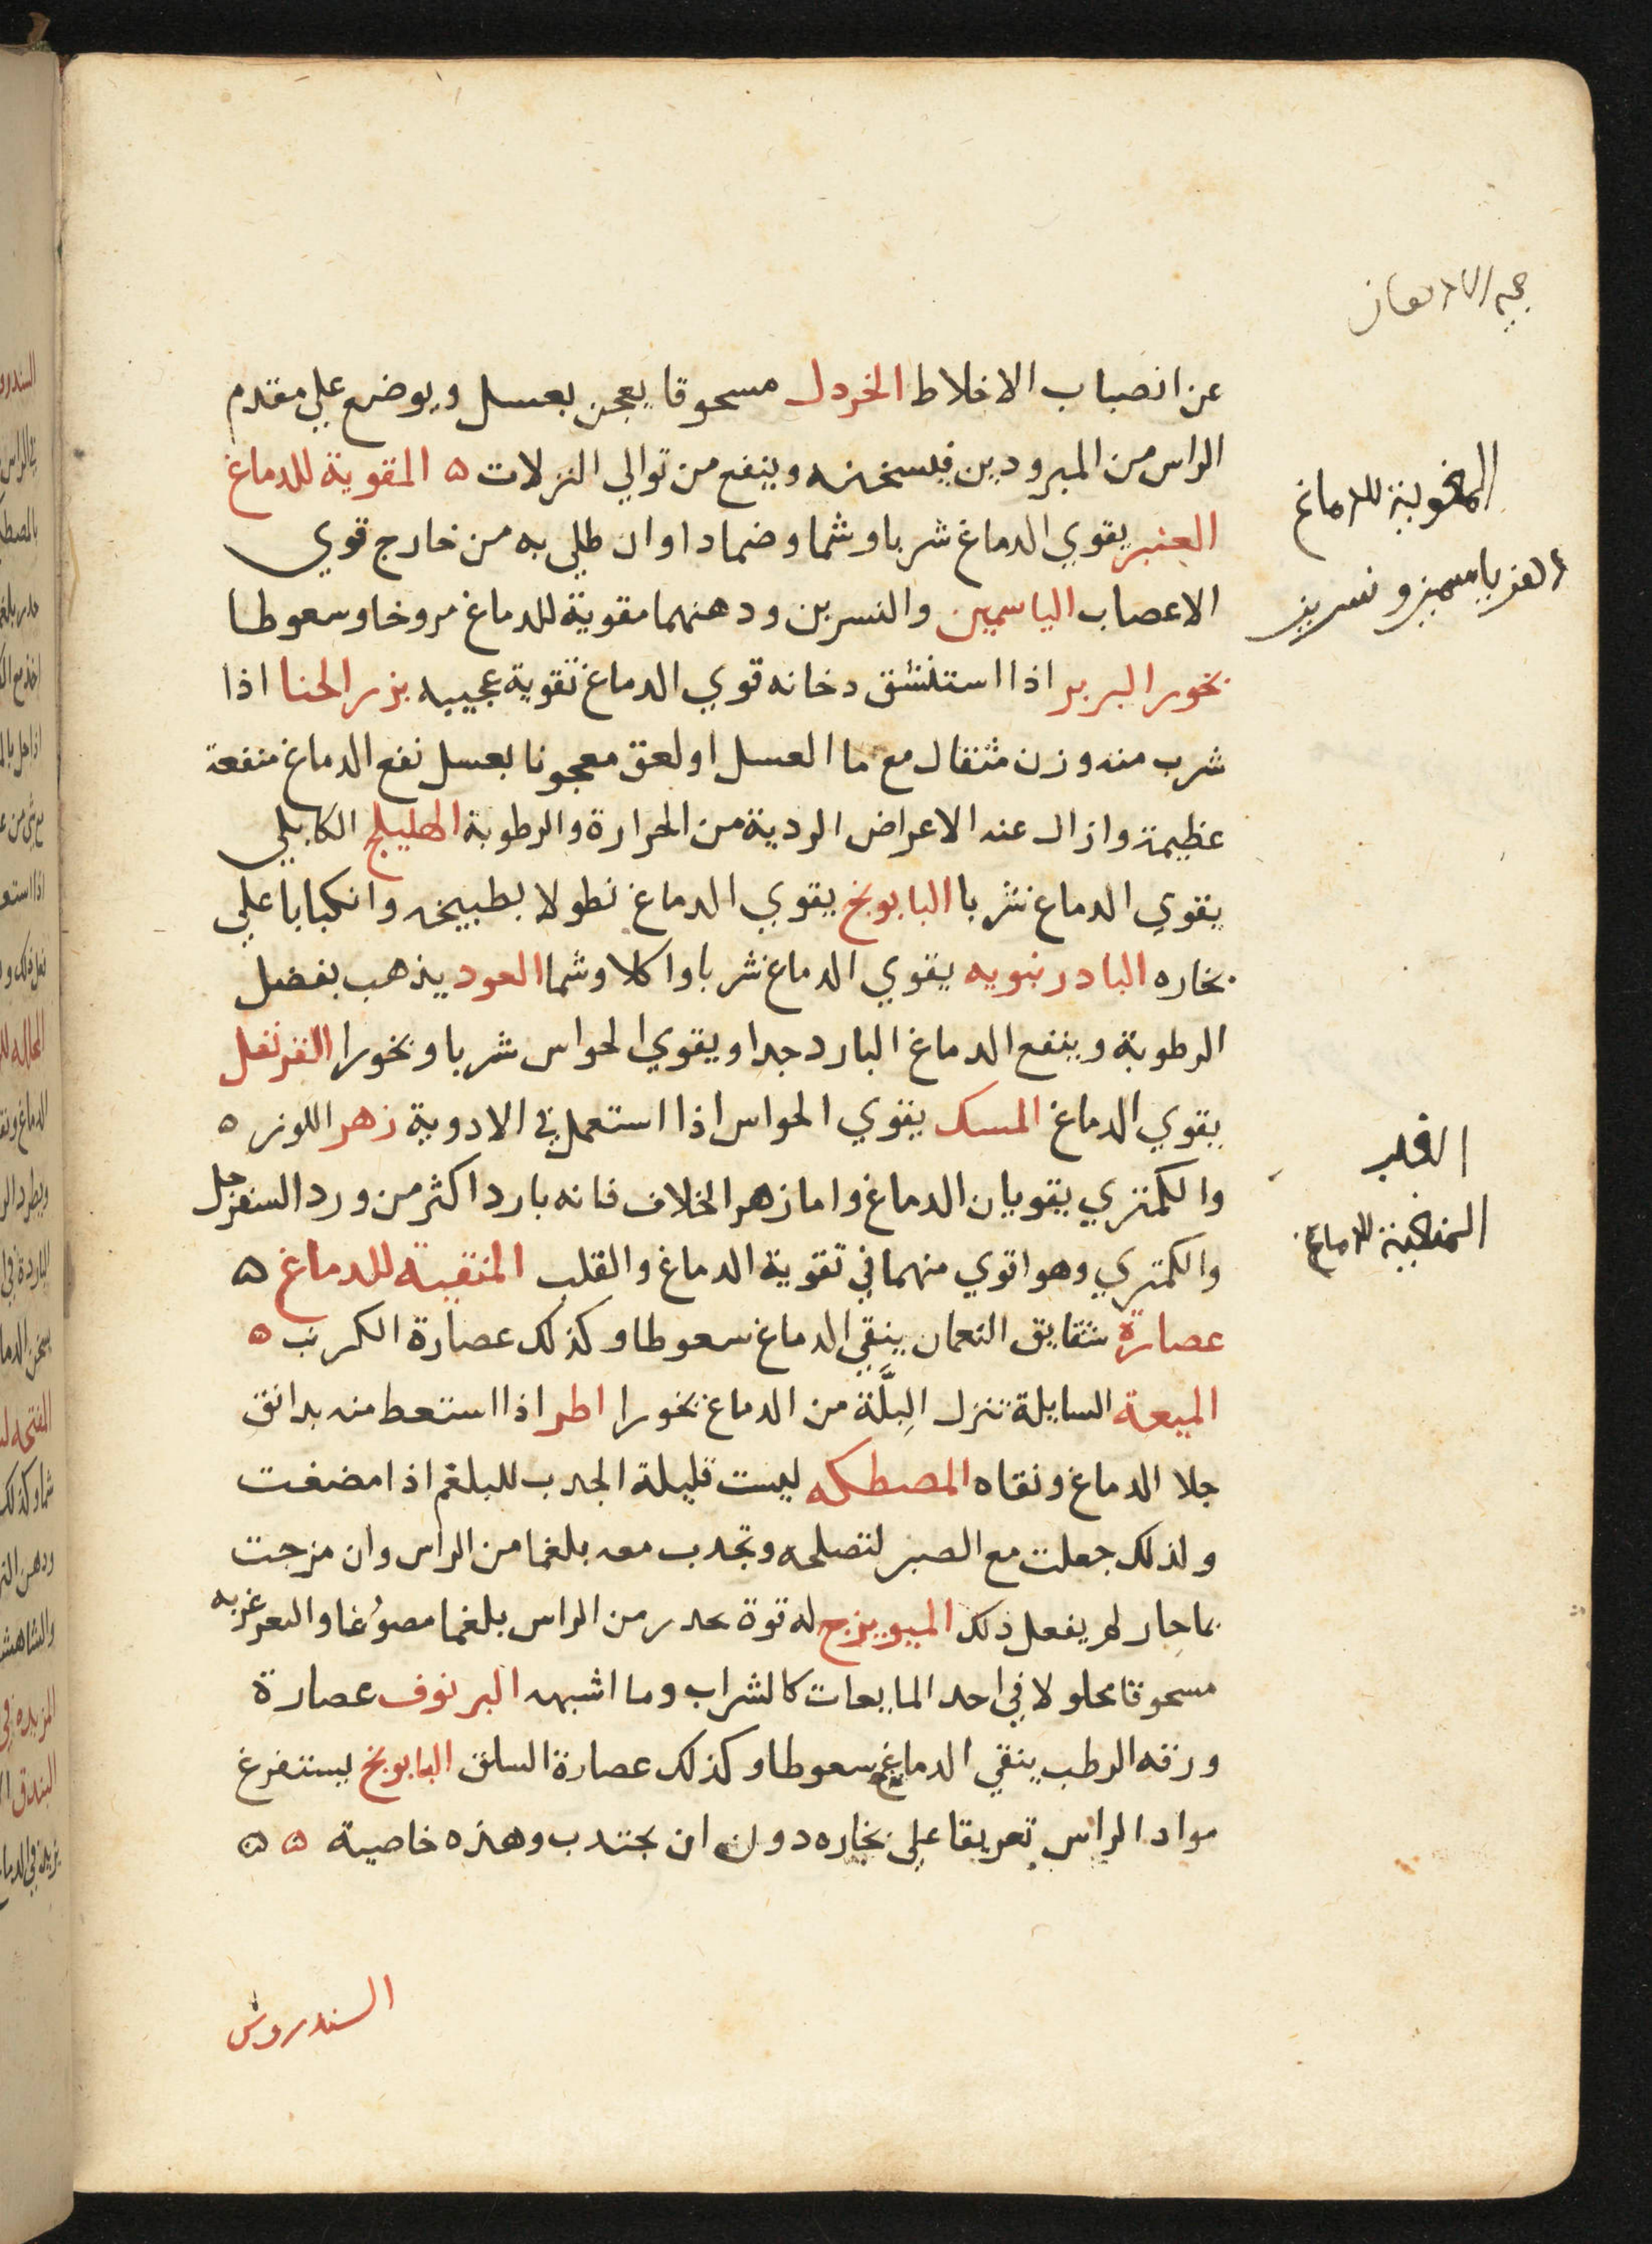 عن انصباب الاخلاط الخردل مسحوقا يعجن بعسل ويوضع علي مقدم
الراس من المبرودين فيسخنه وينفع من توالي النزلات ه المقوية للدماغ
المقوية للدماغ
العنبر يقوي الدماغ شربا وشما وضمادا وان طلي به من خارج قوي
ياسمين و نسرين
الاعصاب الياسمين والنسرين ودهنهما مقوية للدماغ مروخا وسعوطا
بخور البربر اذا استنشق دخانه قوي الدماغ تقوية عجيبه بزر الحنا اذا
شرب منه وزن مثقال مع ما العسل او لعق معجونا بعسل نفع الدماغ منفعة
عظيمة وازال عنه الاعراض الردية من الحرارة والرطوبة الهليلج الكابلي
يقوي الدماغ شربا البابونج يقوي الدماغ نطولا بطبيخه وانكبابا علي
بخاره البادرنبويه يقوي الدماغ شربا واكلا وشما العود يذهب بفضل
الرطوبة وينفع الدماغ البارد جدا ويقوي الحواس شربا وبخورا القرنفل
يقوي الدماغ المسك يقوي الحواس اذا استعمل في الادوية زهر اللوز ه
القلب
والكمثري يقويان الدماغ واما زهر الخلاف فانه بارد اكثر من ورد السفرجل
المنقية للدماغ
والكمثري وهو اقوي منهما في تقوية الدماغ والقلب المنقية للدماغ ه
عصارة شقايق النعمان ينقي الدماغ سعوطا وكذلك عصارة الكرنب ه
الميعة السايلة تنزل البِلَّة من الدماغ بخورا اطر اذا استعط منه بدانق
جلا الدماغ ونقاه المصطكه ليست قليلة الجدب للبلغم اذا مضغت
ولذلك جعلت مع الصبر لتصلحه وتجدب معه بلغما من الراس وان مزجت
بما حار لم يفعل ذلك الميويزج له قوة تحدر من الراس بلغما ممضوغا والتغرغر به
مسحوقا محلولا في احد المايعات كالشراب وما اشبهه البرنوف عصارة
ورقه الرطب ينقي الدماغ سعوطا وكذلك عصارة السلق البابونج يستفرغ
مواد الراس تعريقا علي بخاره دون ان يجتدب وهذه خاصية ه ه
السندروس